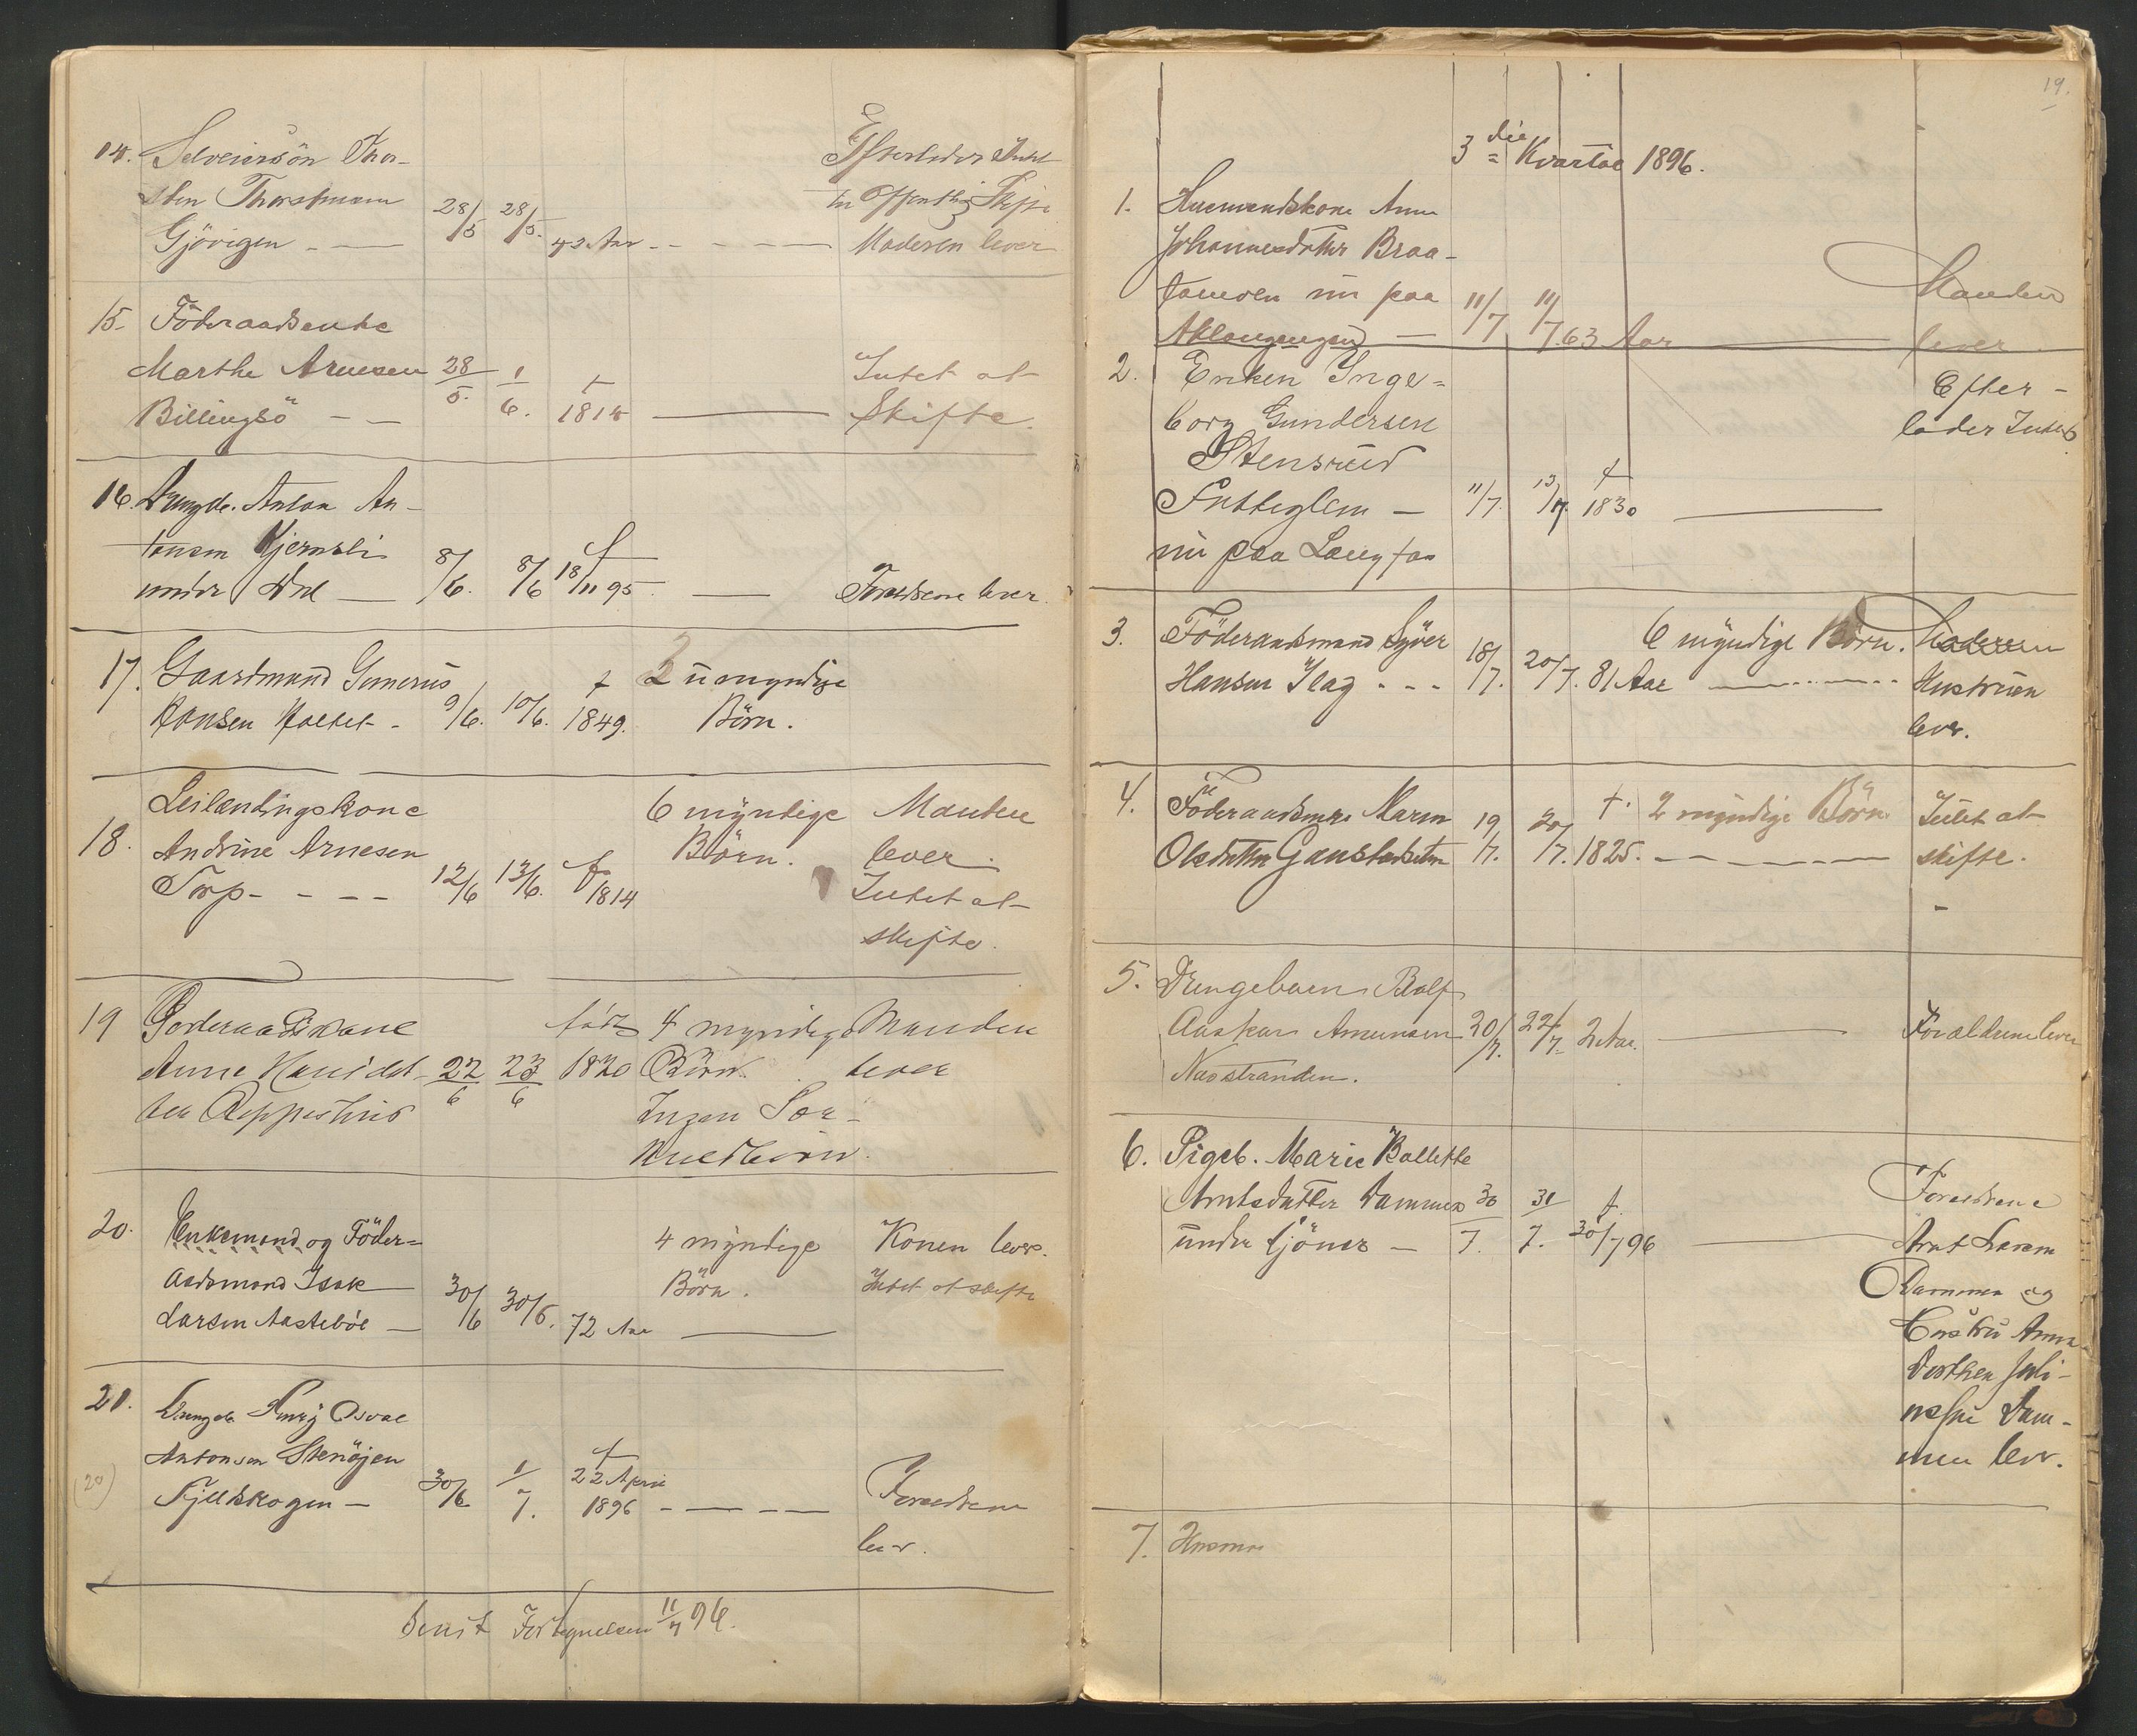 14. Selveiersön Thor-
sten Thorstensen
Gjövigen - — 28/5 28/5. 42 Aar - - - — Efterlader Intet
til Offentlig Skifte
Moderen lever
15. Föderaadsenke
Marthe Arnesen 28/5. 1/6. Intet at
Billingsö - — f 1814 — Skifte.
16. Drengb. Anton An-
tonsen Kjernsli 8/6. 8/6 f 18/11 95 —
under — Forældrene lever.
17. Gaardmand Gunerius f 2 umyndige
Hansen Holtet - 9/6. 10/6. 1849. Börn.
Leilendingskone 6 myndige Manden
18. Andrine Arnesen Börn. lever.
Torp - - - - 12/6 13/6. f 1814 Intet at
skifte.
19 Föderaadskone född 4 myndige Manden
Anne 22/6 23/6 1820 Börn. lever
ter
Ingen Sær-
kuldbörn.
20. Enkemand og Föder= 4 myndige Konen lever.
aadsmand Isak 30/6 30/6. Börn. Intet at skifte
Larsen Aastebøl — 72 Aar —
21. Drengb. Osval
Antonsen Stenöjen f
(20) Fjellskogen — 30/6 1/7. 22 April
1896 - — - — Forældrene
lever.
Sendt Fortegnelsen 11/7 96.
19.
3die Kvartal 1896.
1. Husmandskone Anne
Johannesdatter Braa-
tamoen nu paa 11/7 11/7 Manden
— 63 Aar — lever.
2. Enken Inge= Efter-
borg Gundersen lader Intet
Stensrud
— 11/7. 13/7. f 1830 —
nu paa
3. Föderaadsmand Syver 6 myndige Börn. Moderen
Hansen Ilag - - - 18/7. 20/7. 81 Aar — Hustruen
lever.
4. Föderaadsenke Maren 19/7. 20/7. f. 2 myndige Börn Intet at
Olsdatter 1825. - — - — skifte.
5. Drengebarn Rolf
Aaskar Amunsen 20/7. 22/7. 2 Aar. — Forældrene lever
Nastranden.
6. Pigeb. Marie Bollette
Arntsdatter Dammen 30/7. 31/7. f. Forældrene
under Tjöner — 30/7 96 — Arnt Larsen
Dammen og
Hustru Anna
Dorthea Juli-
nesen Dam-
men lever.
7. Husman